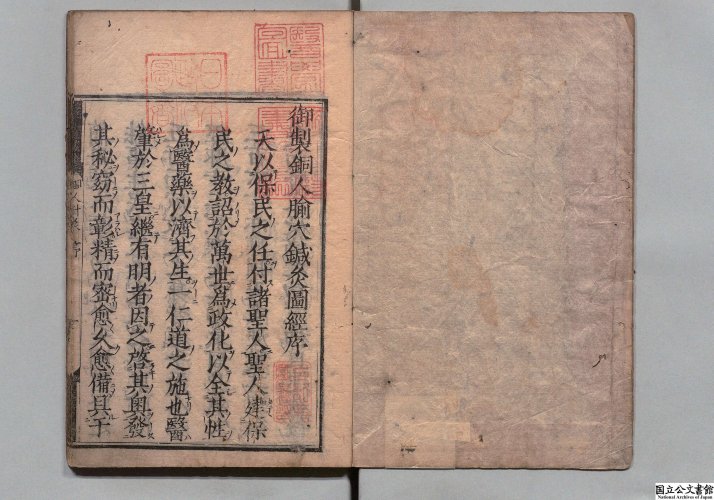 御製銅人腧穴鍼灸圖經序
天以保民之任付諸聖人聖人建保
民之教詔於萬世爲政化以全其性
爲醫藥以濟其生一仁道之施也醫
肇於三皇繼有明者因之啓其奥發
其秘窈而彰精而密愈久愈備具于
国立公文書館
National Archives of Japan